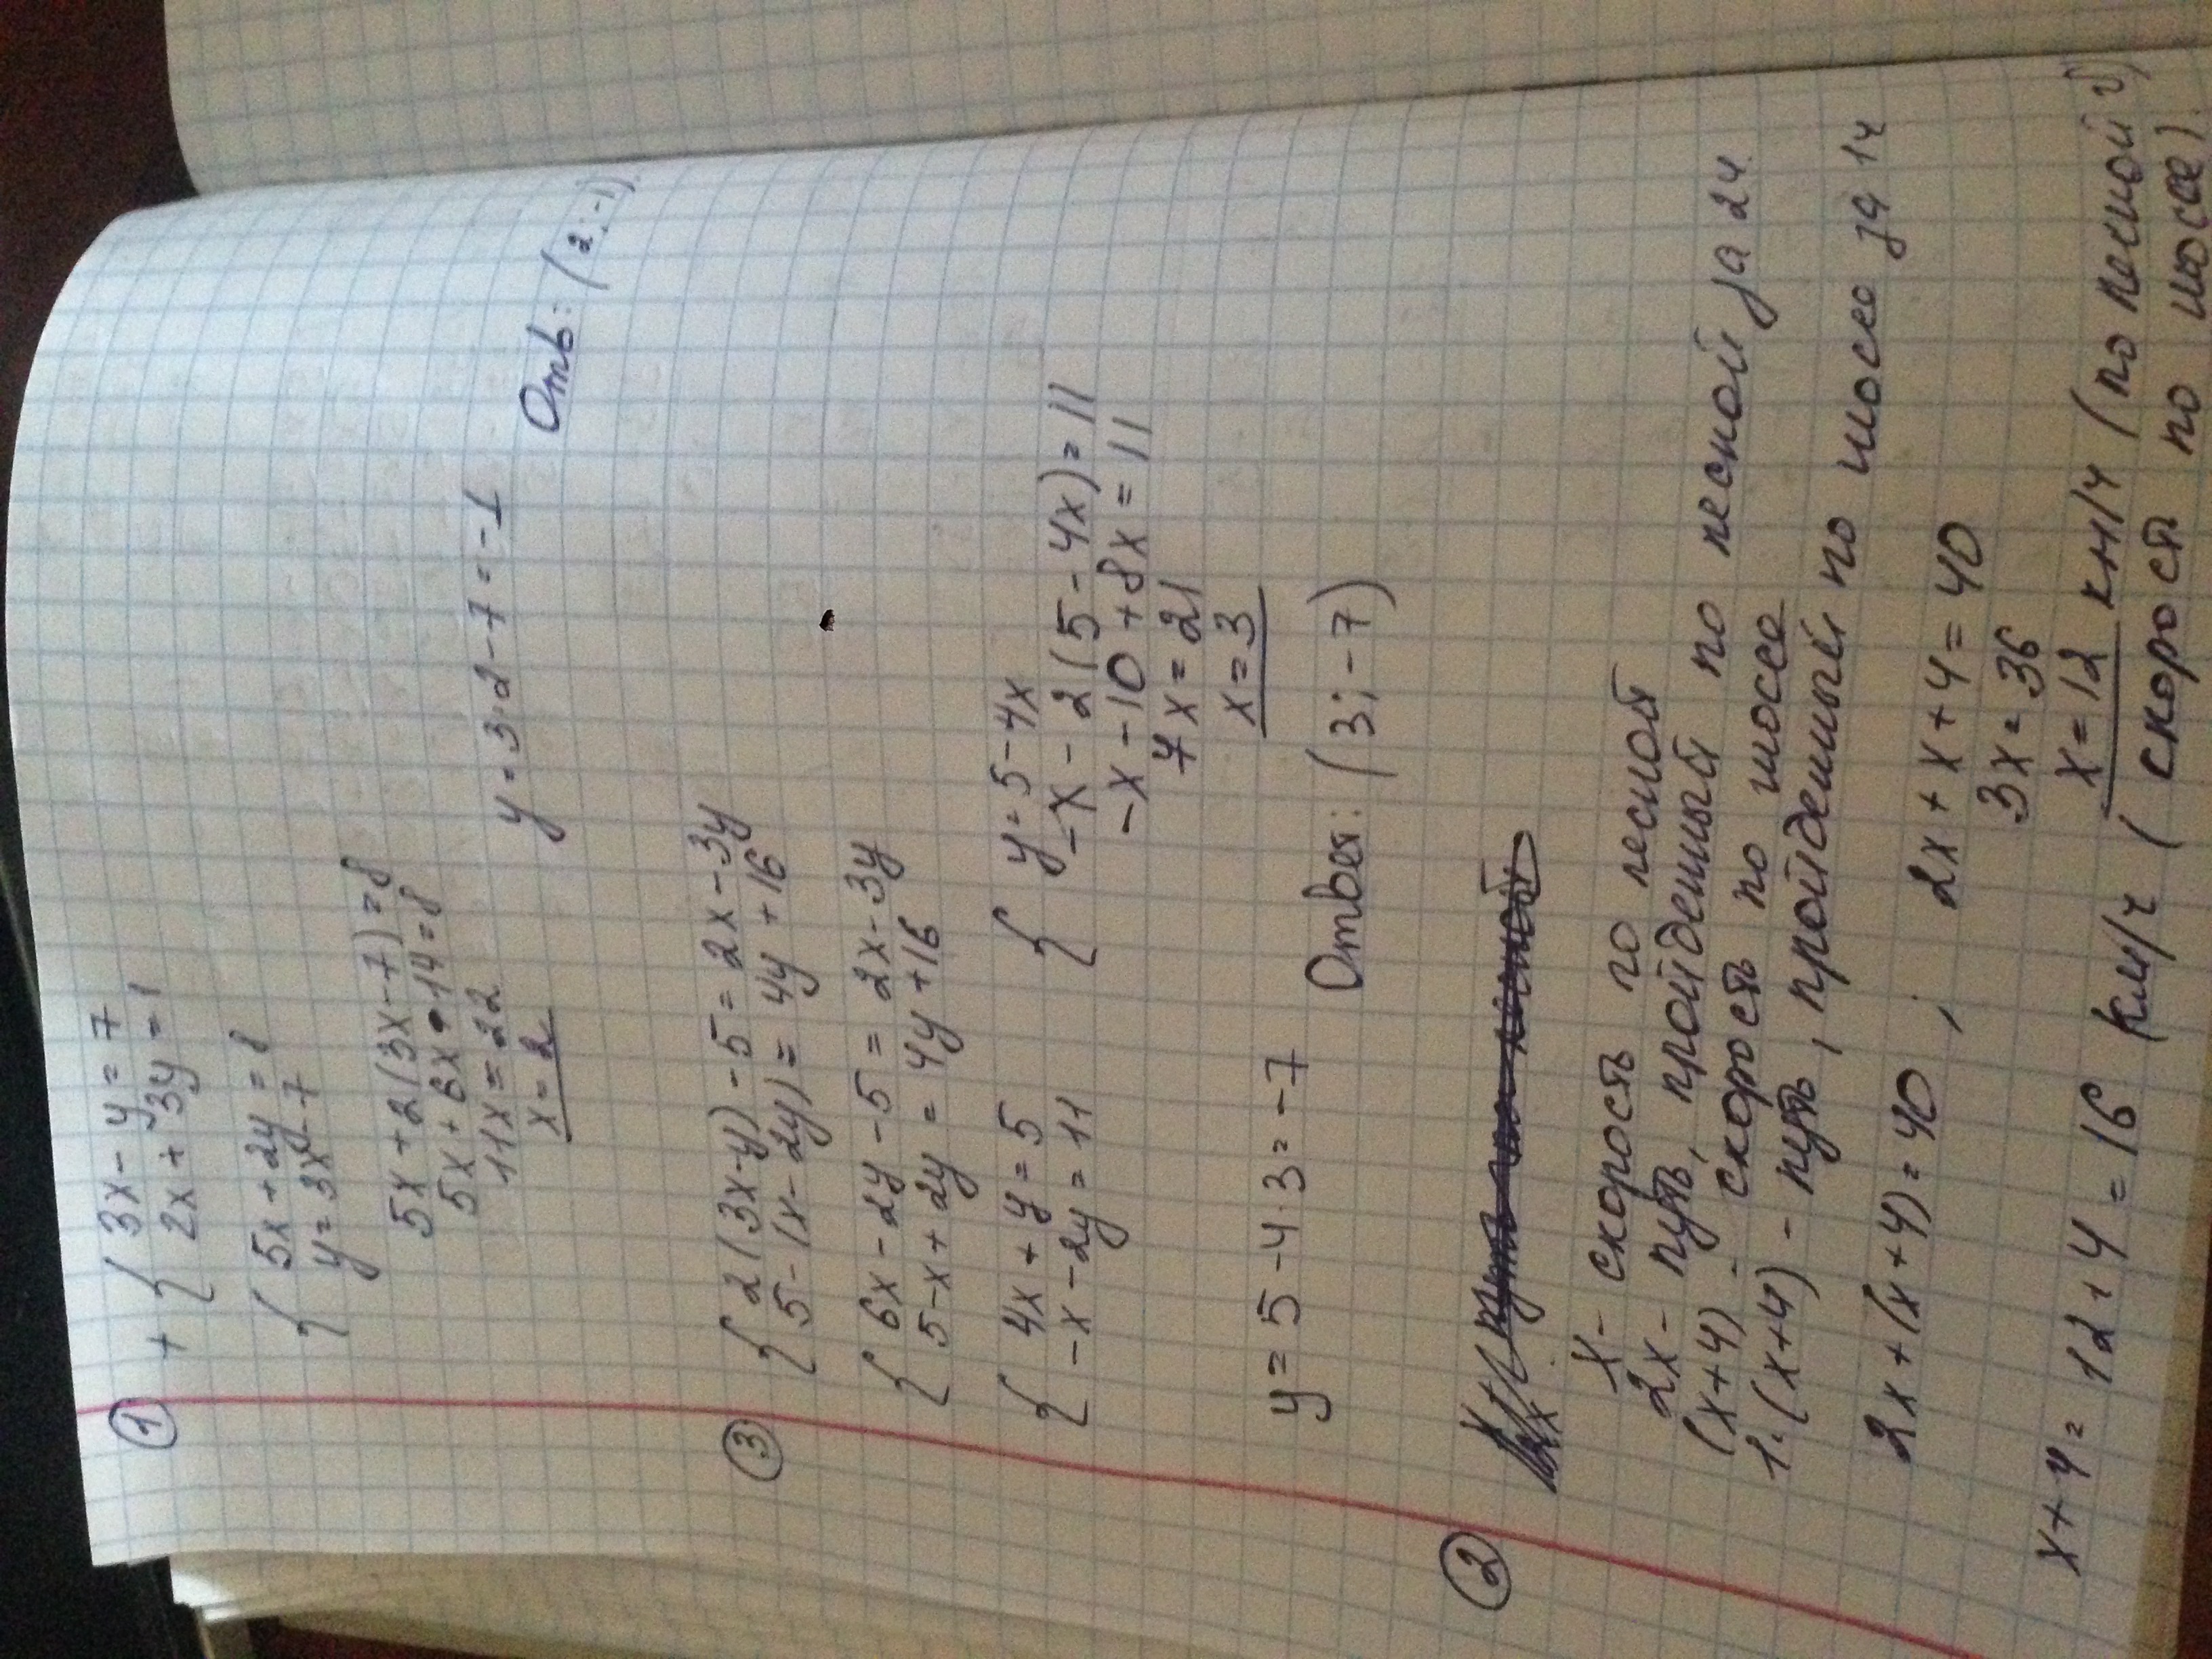 ① + { 3x - y = 7
2x + 3y = 1
{ 5x + 2y = 8
y = 3x - 7
5x + 2(3x - 7) = 8
5x + 6x - 14 = 8
11x = 22
x = 2
y = 3·2 - 7 = -1
Отв: (2; -1)
③ { 2(3x - y) - 5 = 2x - 3y
5 - (x - 2y) = 4y + 16
{ 6x - 2y - 5 = 2x - 3y
5 - x + 2y = 4y + 16
{ 4x + y = 5
-x - 2y = 11
{ y = 5 - 4x
-x - 2(5 - 4x) = 11
-x - 10 + 8x = 11
7x = 21
x = 3
y = 5 - 4·3 = -7
Ответ: (3; -7)
②
x - скорость по лесной
2x - путь, пройденный по лесной за 2ч
(x+4) - скорость по шоссе
1·(x+4) - путь, пройденный по шоссе за 1ч
2x + (x+4) = 40 ; 2x + x + 4 = 40
3x = 36
x = 12 км/ч (по лесной
x + 4 = 12 + 4 = 16 км/ч (скорость по шоссе).